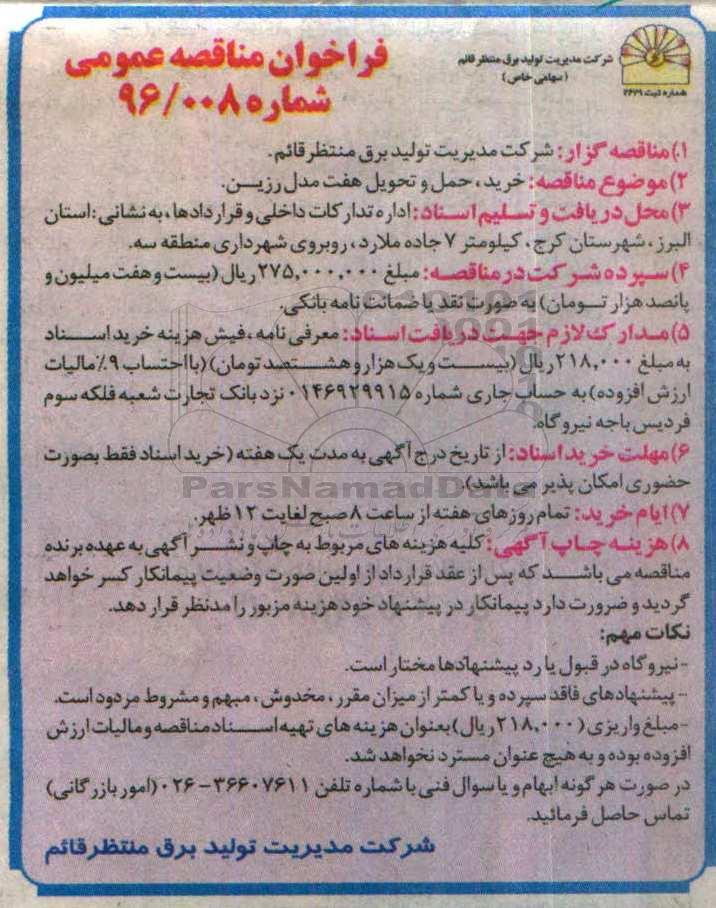 شرکت مدیریت تولید برق منتظر قائم
(سهامی خاص)
شماره ثبت ۲۶۲۹
فراخوان مناقصه عمومی
شماره ۹۶/۰۰۸
۱) مناقصه گزار: شرکت مدیریت تولید برق منتظر قائم.
۲) موضوع مناقصه: خرید، حمل و تحویل هفت مدل رزین.
۳) محل دریافت و تسلیم اسناد: اداره تدارکات داخلی و قراردادها، به نشانی: استان
البرز، شهرستان کرج، کیلومتر ۷ جاده ملارد، روبروی شهرداری منطقه سه.
۴) سپرده شرکت در مناقصه: مبلغ ۲۷۵,۰۰۰,۰۰۰ ریال (بیست و هفت میلیون و
پانصد هزار تومان) به صورت نقد یا ضمانت نامه بانکی.
۵) مدارک لازم جهت دریافت اسناد: معرفی نامه، فیش هزینه خرید اسناد
به مبلغ ۲۱۸,۰۰۰ ریال (بیست و یک هزار و هشتصد تومان) (با احتساب ۹٪ مالیات
ارزش افزوده) به حساب جاری شماره ۰۱۴۶۹۲۹۹۱۵ نزد بانک تجارت شعبه فلکه سوم
فردیس باجه نیروگاه.
۶) مهلت خرید اسناد: از تاریخ درج آگهی به مدت یک هفته (خرید اسناد فقط بصورت
حضوری امکان پذیر می باشد)
۷) ایام خرید: تمام روزهای هفته از ساعت ۸ صبح لغایت ۱۲ ظهر.
۸) هزینه چاپ آگهی: کلیه هزینه های مربوط به چاپ و نشر آگهی به عهده برنده
مناقصه می باشد که پس از عقد قرارداد از اولین صورت وضعیت پیمانکار کسر خواهد
گردید و ضرورت دارد پیمانکار در پیشنهاد خود هزینه مزبور را مدنظر قرار دهد.
نکات مهم:
- نیروگاه در قبول یا رد پیشنهادها مختار است.
- پیشنهادهای فاقد سپرده و یا کمتر از میزان مقرر، مخدوش، مبهم و مشروط مردود است.
- مبلغ واریزی (۲۱۸,۰۰۰ ریال) بعنوان هزینه های تهیه اسناد مناقصه و مالیات ارزش
افزوده بوده و به هیچ عنوان مسترد نخواهد شد.
در صورت هرگونه ابهام و یا سوال فنی با شماره تلفن ۳۶۶۰۷۶۱۱-۰۲۶ (امور بازرگانی)
تماس حاصل فرمائید.
شرکت مدیریت تولید برق منتظر قائم
ParsNamadData